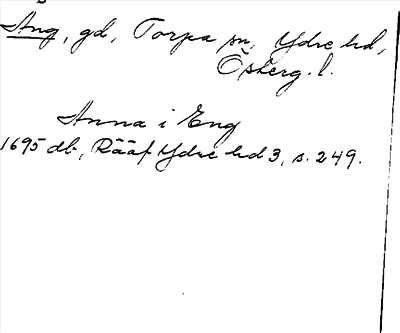 Äng, gd, Torpa sn, Ydre hd,
Österg. l.
Anna i Eng
1695 db, Rääf Ydre hd 3, s. 249.